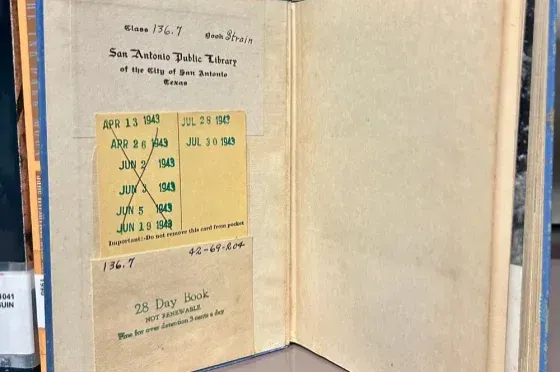 Class 136.7 Book Strain
San Antonio Public Library
of the City of San Antonio
Texas
APR 13 1943
APR 26 1943
JUN 2 1943
JUN 3 1943
JUN 5 1943
JUN 19 1943
JUL 28 1943
JUL 30 1943
Important:-Do not remove this card from pocket
136.7 42-69-204
28 Day Book
NOT RENEWABLE
Fine for over detention 3 cents a day
1041
UIN